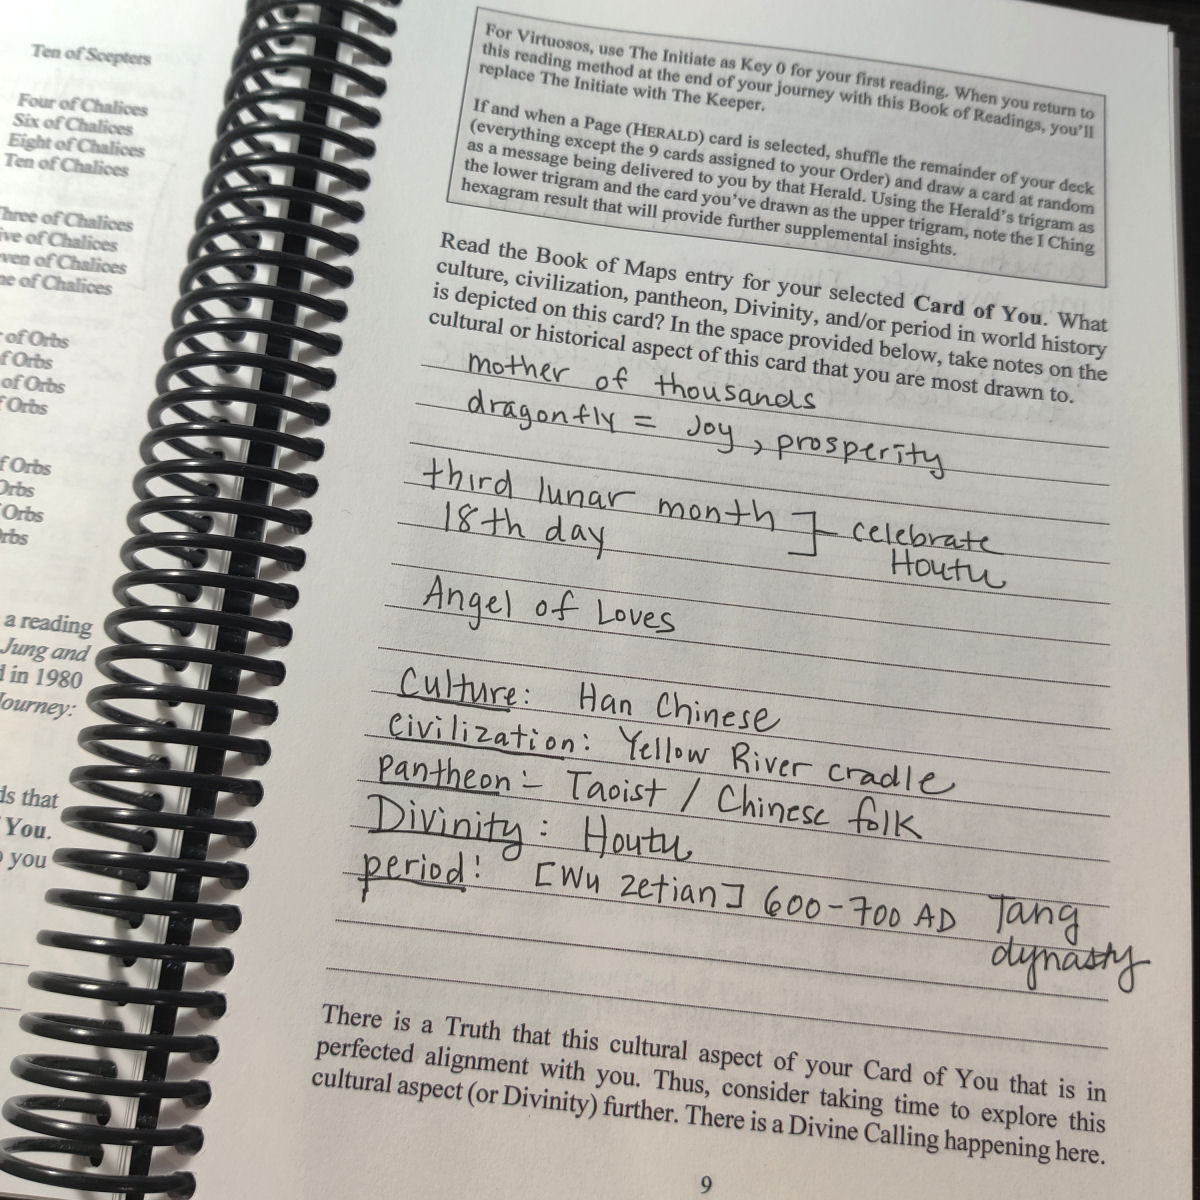 Ten of Scepters
Four of Chalices
Six of Chalices
Eight of Chalices
Ten of Chalices
Three of Chalices
of Chalices
of Chalices
of Chalices
of Orbs
of Orbs
of Orbs
Orbs
of Orbs
Orbs
Orbs
a reading
Jung and
in 1980
Journey:
that
You.
you
For Virtuosos, use The Initiate as Key 0 for your first reading. When you return to
this reading method at the end of your journey with this Book of Readings, you'll
replace The Initiate with The Keeper.
If and when a Page (HERALD) card is selected, shuffle the remainder of your deck
(everything except the 9 cards assigned to your Order) and draw a card at random
as a message being delivered to you by that Herald. Using the Herald's trigram as
the lower trigram and the card you've drawn as the upper trigram, note the I Ching
hexagram result that will provide further supplemental insights.
Read the Book of Maps entry for your selected Card of You. What
culture, civilization, pantheon, Divinity, and/or period in world history
is depicted on this card? In the space provided below, take notes on the
cultural or historical aspect of this card that you are most drawn to.
mother of thousands
dragonfly = Joy, prosperity
third lunar month ] celebrate
18th day Houtu
Angel of Loves
Culture: Han Chinese
civilization: Yellow River cradle
pantheon: Taoist / Chinese folk
Divinity: Houtu
period: [Wu Zetian] 600-700 AD Tang
dynasty
There is a Truth that this cultural aspect of your Card of You that is in
perfected alignment with you. Thus, consider taking time to explore this
cultural aspect (or Divinity) further. There is a Divine Calling happening here.
9